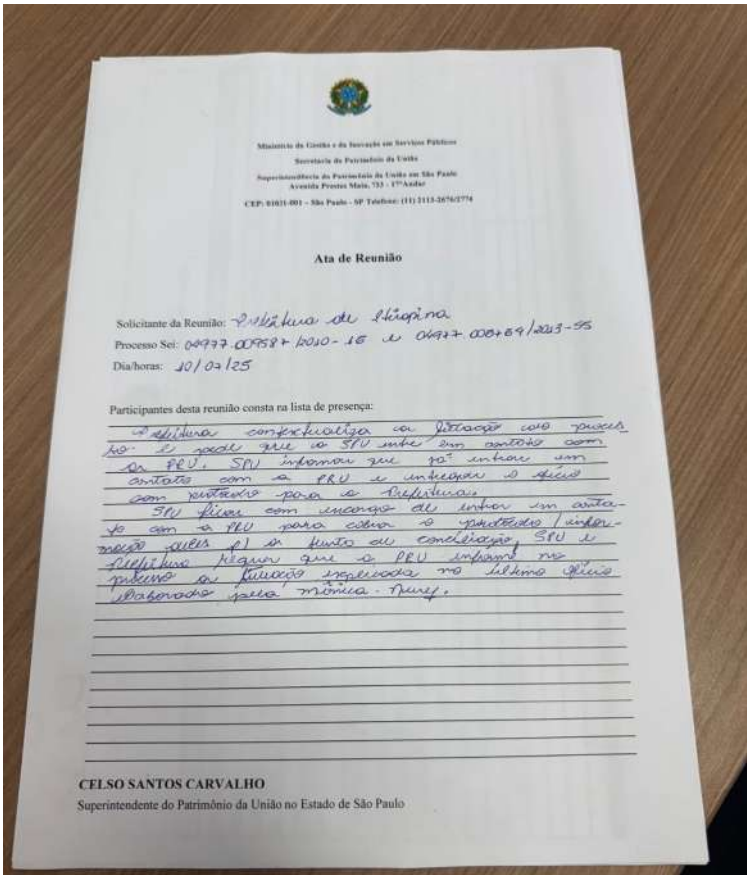 Ministério da Gestão e da Inovação em Serviços Públicos
Secretaria do Patrimônio da União
Superintendência do Patrimônio da União em São Paulo
Avenida Prestes Maia, 733 - 17º Andar
CEP: 01031-001 - São Paulo - SP Telefone: (11) 2113-2676/2774
Ata de Reunião
Solicitante da Reunião: Prefeitura de
Processo Sei: 04977.009587/2010-16 e 04977.008769/2013-55
Dia/horas: 10/07/25
Participantes desta reunião consta na lista de presença:
Prefeitura contextualiza a situação do proces
so e pede que a SPU entre em contato com
a PRU. SPU informou que já entrou em
contato com a PRU e o ofício
com protocolo para a Prefeitura.
SPU ficou com encargo de entrar em conta-
to com a PRU para cobrar o protocolo / infor-
mação a junta de conciliação, SPU e
Prefeitura requer que a PRU informe no
processo a situação no último ofício
elaborado pela Mônica.
CELSO SANTOS CARVALHO
Superintendente do Patrimônio da União no Estado de São Paulo